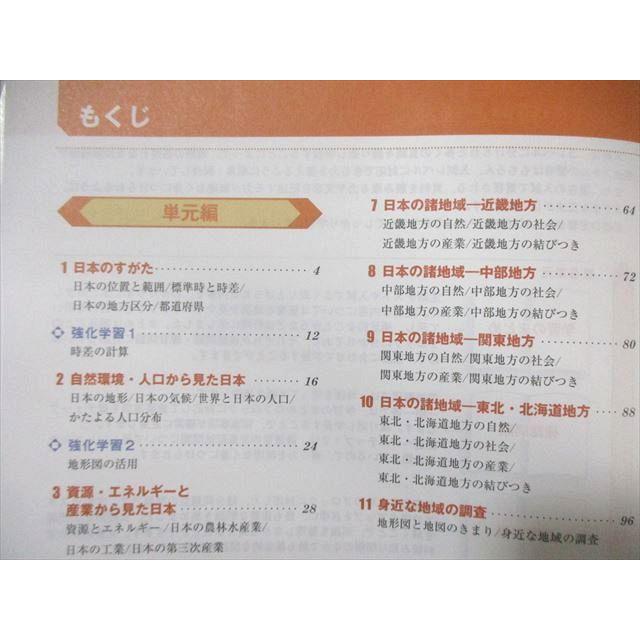 もくじ
単元編
1 日本のすがた 4
日本の位置と範囲/標準時と時差/
日本の地方区分/都道府県
強化学習1 12
時差の計算
2 自然環境・人口から見た日本 16
日本の地形/日本の気候/世界と日本の人口/
かたよる人口分布
強化学習2 24
地形図の活用
3 資源・エネルギーと
産業から見た日本 28
資源とエネルギー/日本の農林水産業/
日本の工業/日本の第三次産業
7 日本の諸地域―近畿地方 64
近畿地方の自然/近畿地方の社会/
近畿地方の産業/近畿地方の結びつき
8 日本の諸地域―中部地方 72
中部地方の自然/中部地方の社会/
中部地方の産業/中部地方の結びつき
9 日本の諸地域―関東地方 80
関東地方の自然/関東地方の社会/
関東地方の産業/関東地方の結びつき
10 日本の諸地域―東北・北海道地方 88
東北・北海道地方の自然/
東北・北海道地方の社会/
東北・北海道地方の産業/
東北・北海道地方の結びつき
11 身近な地域の調査 96
地形図と地図のきまり/身近な地域の調査